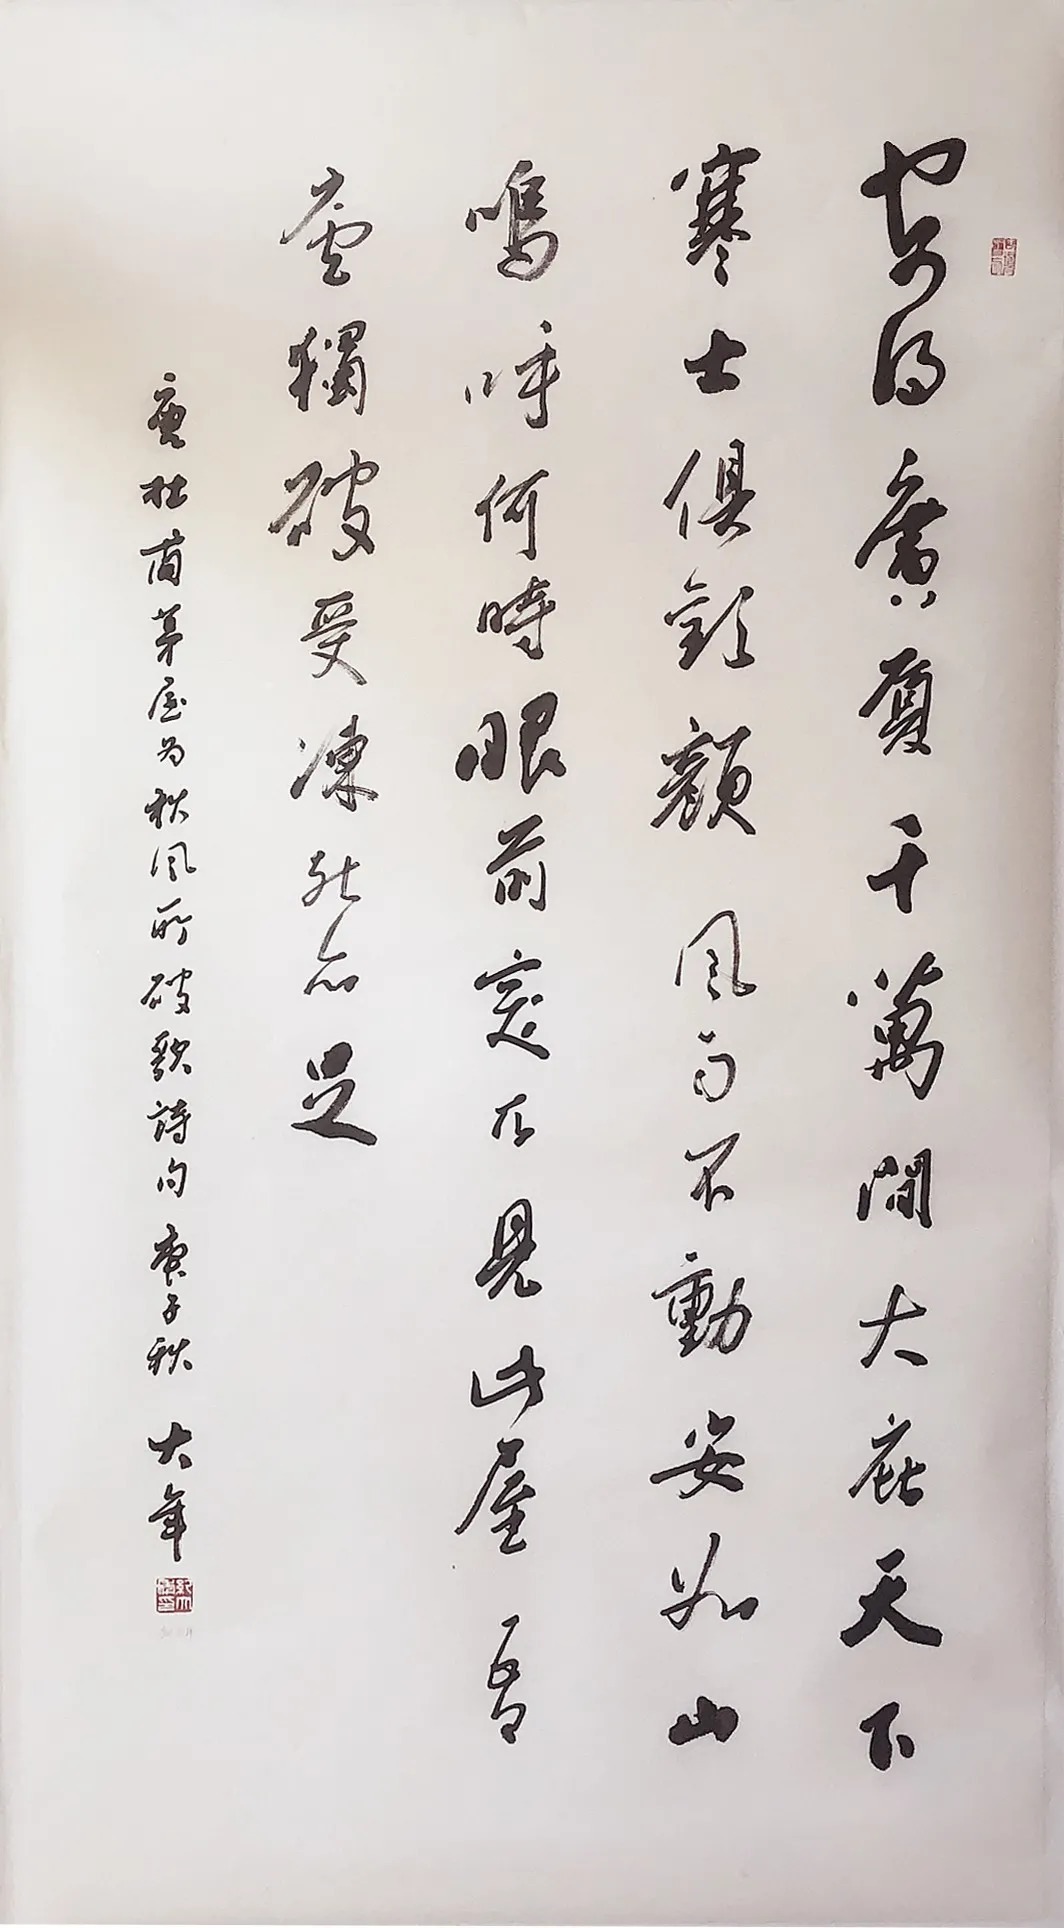 安得廣厦千萬間大庇天下
寒士俱歡顏風雨不動安如山
嗚呼何時眼前突兀見此屋吾
廬獨破受凍死亦足
唐杜甫茅屋为秋風所破歌詩句 庚子秋 大年